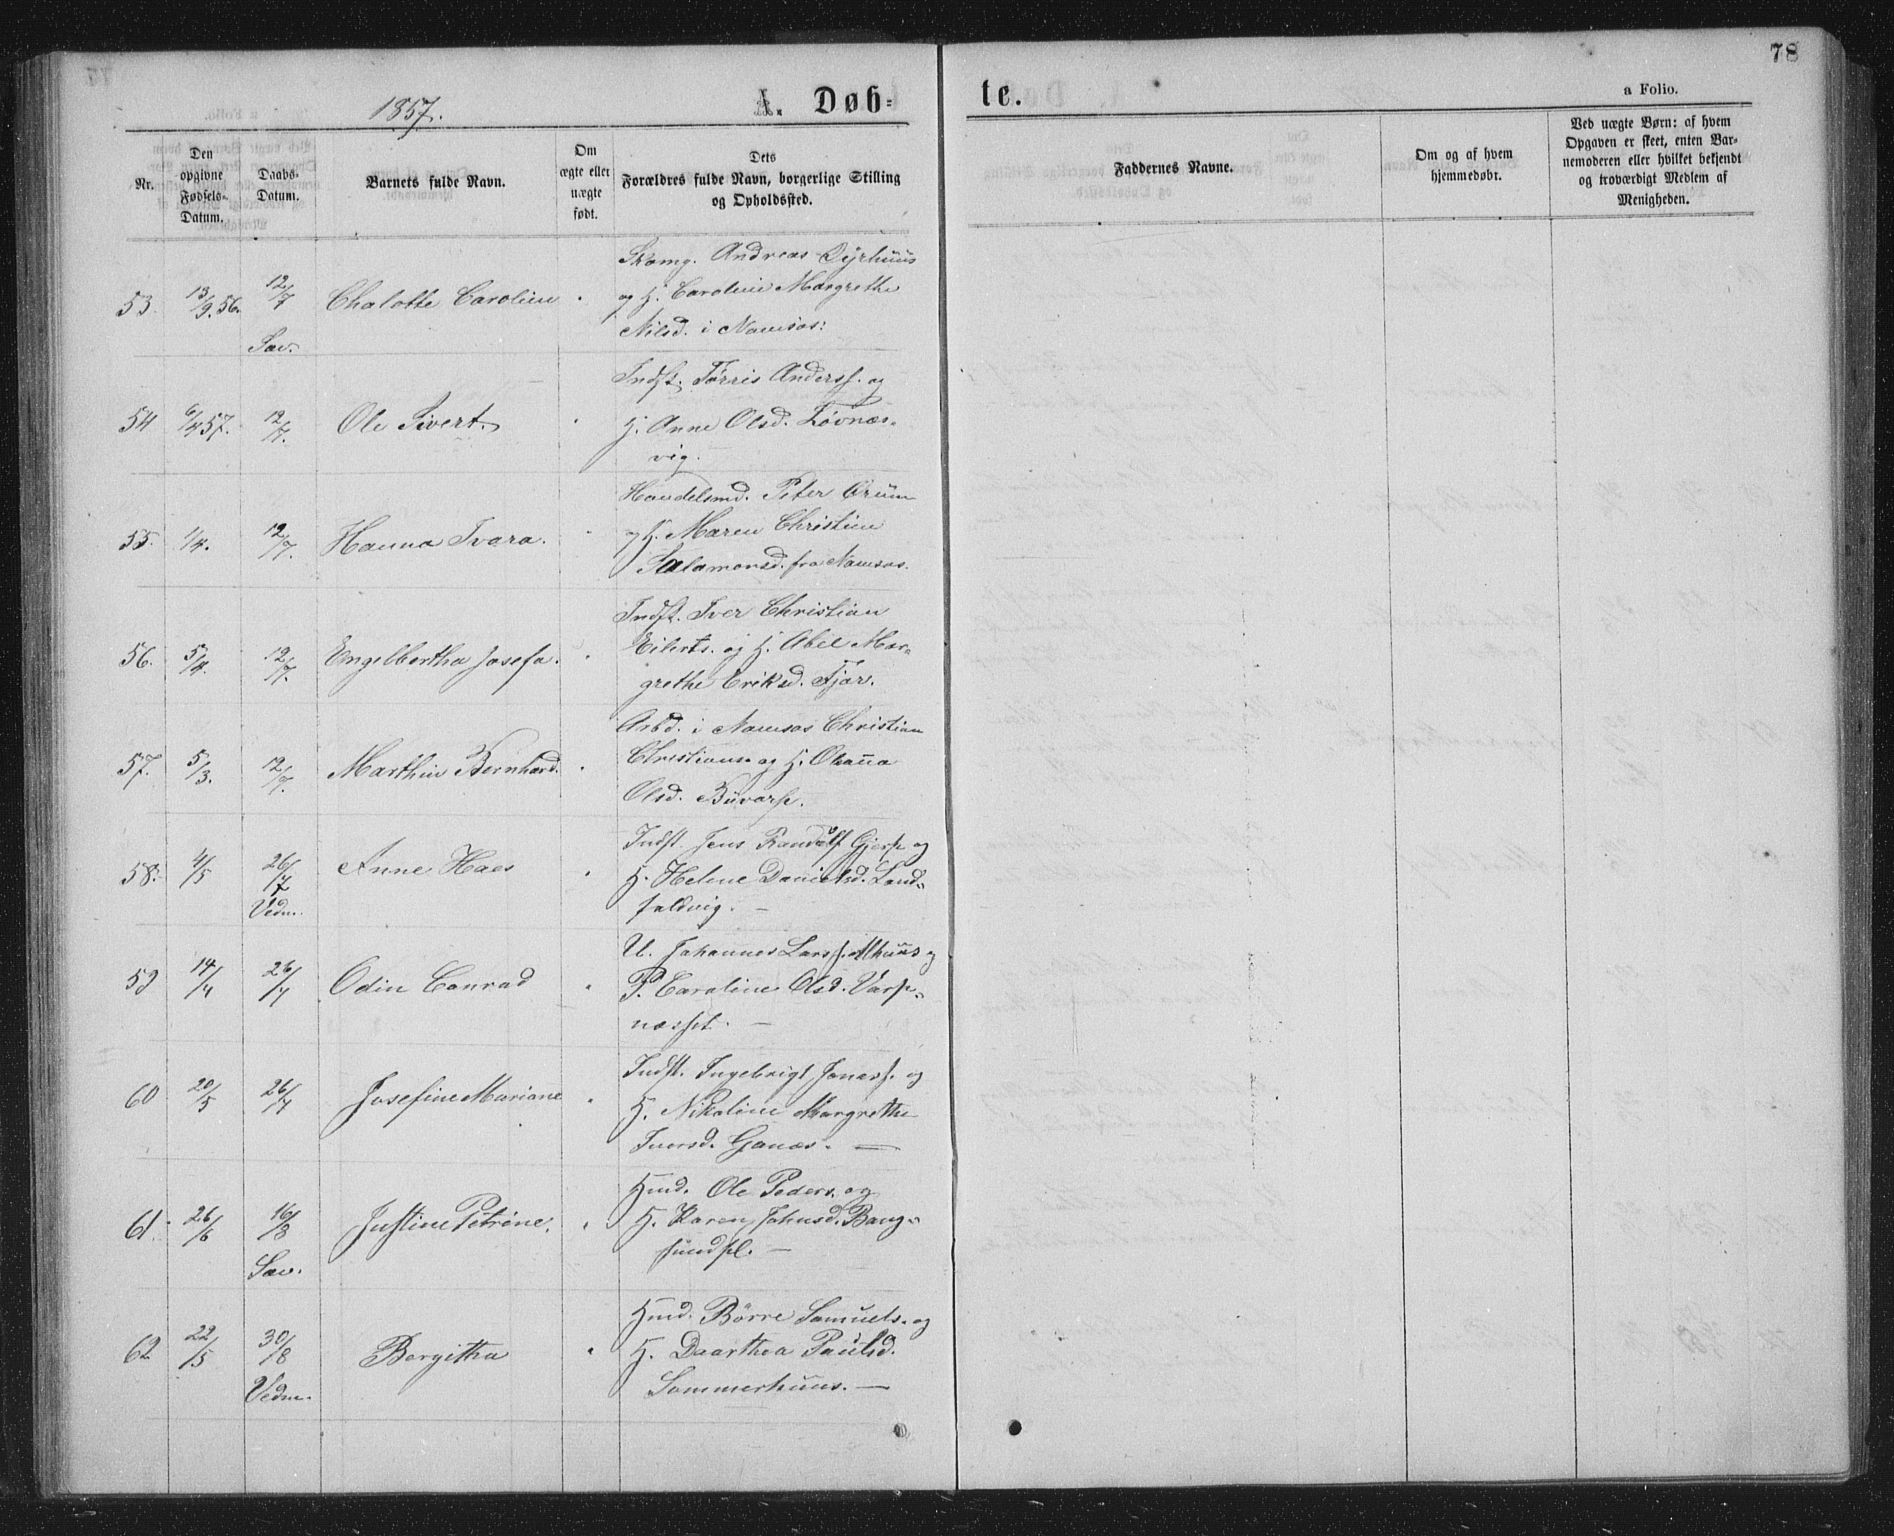 78
1857.
A. Døb-
te.
a Folio.
Nr.
Den opgivne Fødsels-Datum.
Daabs-Datum.
Barnets fulde Navn.
Om ægte eller uægte født.
Dets Forældres fulde Navn, borgerlige Stilling og Opholdssted.
Faddernes Navne.
Om og af hvem hjemmedøbt.
Ved uægte Børn: af hvem Opgaven er skeet, enten Barnemoderen eller hvilket bekjendt og troværdigt Medlem af Menigheden.
53. 13/9.56. 12/7 Sav. Chalotte Caroline
Skomg. Andreas Dyrhuus
og H. Caroline Margrethe
Nilsd. i Namsos.
54 6/4 57. 12/7. Ole Sivert.
Indst. Tørris Anderss. og
H. Anne Olsd. Løvnæs-
vig.
55. 1/4. 12/7. Hanna Ivara.
Handelsmd. Peter Brüün
og H. Maren Christine
Salamonsd. fra Namsos.
56. 5/4. 12/7. Engelbertha Josefa.
Indst. Iver Christian
Eilerts. og H. Abel Mar-
grethe Eriksd. Fjær.
57. 5/3. 12/7. Marthin Bernhard.
Arbd. i Namsos Christian
Christians. og H. Oleanna
Olsd. Büvarp.
58. 4/5 26/7 Vedm. Anne Haes
Indst. Jens Randulf Gjers. og
H. Helene Danielsd. Land-
faldvig. —
59 14/4 26/7 Odin Conrad
U. Johannes Larss. Alhuus og
P. Caroline Olsd. Varp-
næsset. —
60 20/5 26/7 Josefine Mariane
Indst. Ingebrigt Jonass. og
H. Nikoline Margrethe
Iversd. Ganæs. —
61. 26/6 16/8 Sav. Justine Petrine.
Hmd. Ole Peders. og
H. Karen Johnsd. Bang-
sundpl. —
62 22/5 30/8 Vedm. Bergitha
Hmd. Børre Samuels. og
H. Daarthea Paulsd.
Sommerhuus. —